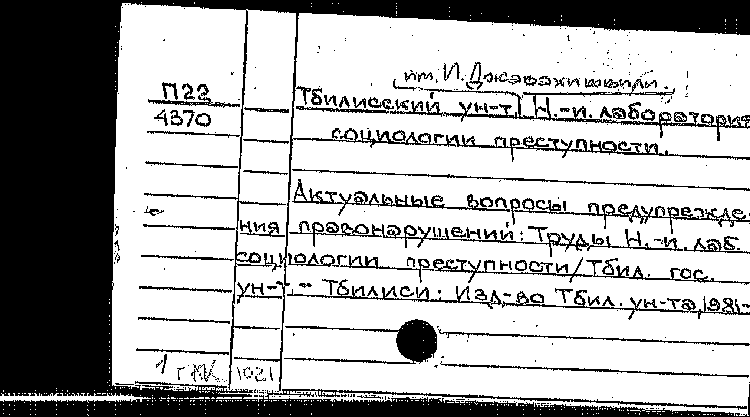 им. И. Джавахишвили.
П22
Тбилисский ун-т. Н.-и. лаборатория
4370
социологии преступности.
Актуальные вопросы предупрежде-
ния правонарушений: Труды Н.-и. лаб.
социологии преступности/Тбил. гос.
ун-т. - Тбилиси: Изд-во Тбил. ун-та, 1981-
1021